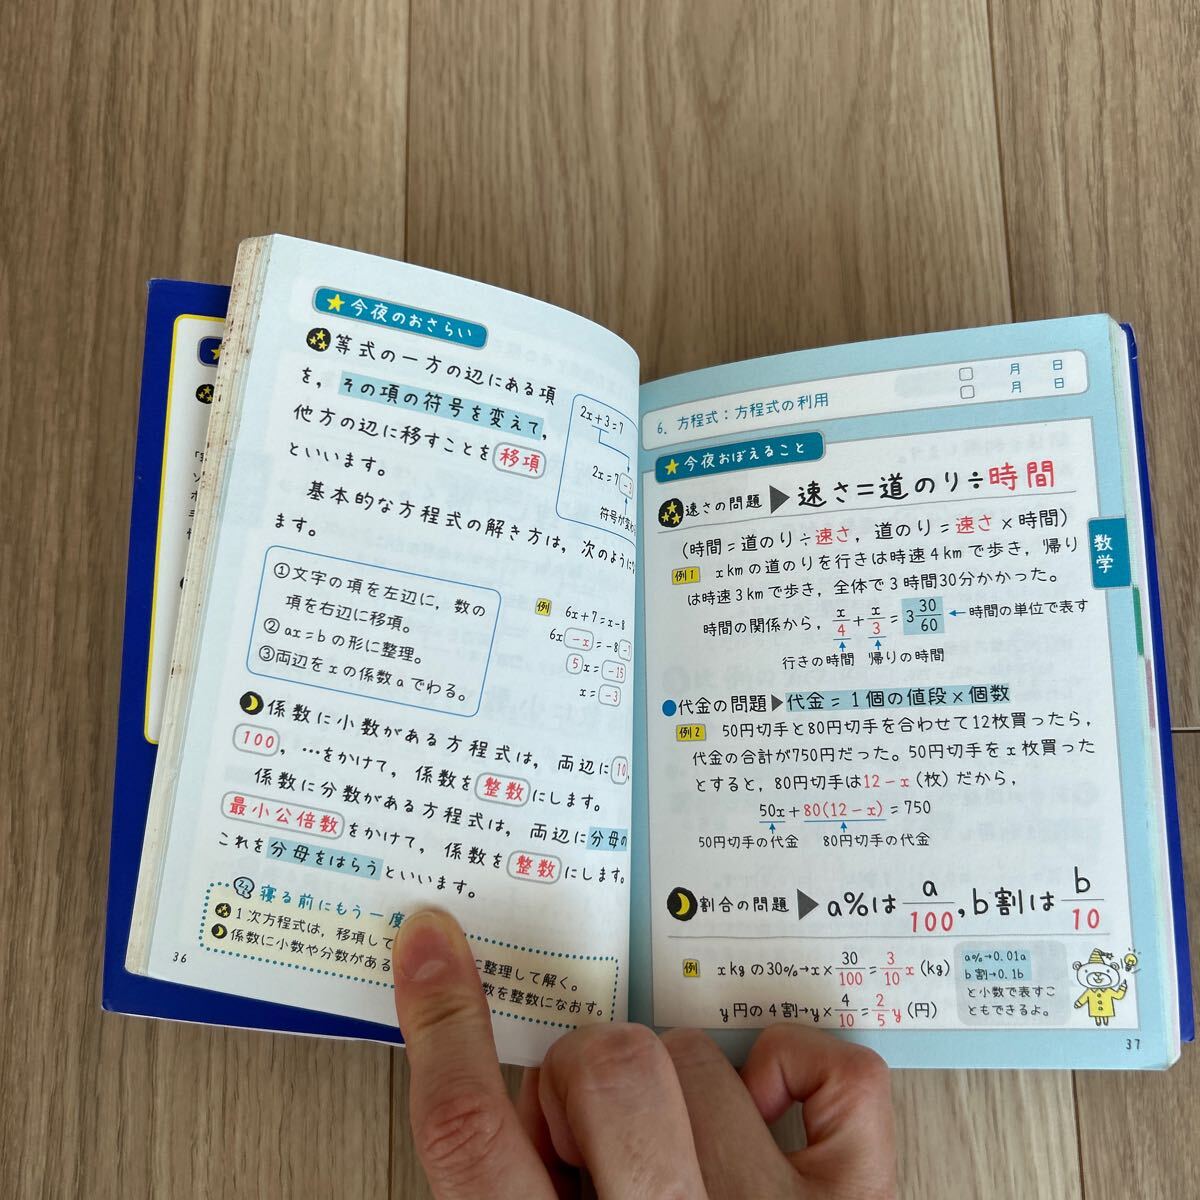 今夜のおさらい
等式の一方の辺にある項
を，その項の符号を変えて，
他方の辺に移すことを移項
といいます。
基本的な方程式の解き方は，次のように
ます。
2x+3=7
2x=7-3
符号が変わ
①文字の項を左辺に，数の
項を右辺に移項。
②ax=bの形に整理。
③両辺をxの係数aでわる。
例 6x+7=x-8
6x-x=-8-
5x=-15
x=-3
係数に小数がある方程式は，両辺に10，
100，…をかけて，係数を整数にします。
係数に分数がある方程式は，両辺に分母の
最小公倍数をかけて，係数を整数にします。
これを分母をはらうといいます。
寝る前にもう一度
1次方程式は，移項して に整理して解く。
係数に小数や分数がある 数を整数になおす。
36
月 日
月 日
6．方程式：方程式の利用
今夜おぼえること
速さの問題▶速さ=道のり÷時間
(時間=道のり÷速さ，道のり=速さ×時間)
例1 xkmの道のりを行きは時速4kmで歩き，帰り
は時速3kmで歩き，全体で3時間30分かかった。
時間の関係から，x/4+x/3=3 30/60 ←時間の単位で表す
行きの時間 帰りの時間
代金の問題▶代金=1個の値段×個数
例2 50円切手と80円切手を合わせて12枚買ったら，
代金の合計が750円だった。50円切手をx枚買った
とすると，80円切手は12-x(枚)だから，
50x+80(12-x)=750
50円切手の代金 80円切手の代金
割合の問題▶a%はa/100，b割はb/10
例 xkgの30%→x×30/100=3/10x(kg)
y円の4割→y×4/10=2/5y(円)
a%→0.01a
b割→0.1b
と小数で表すこ
ともできるよ。
数学
37